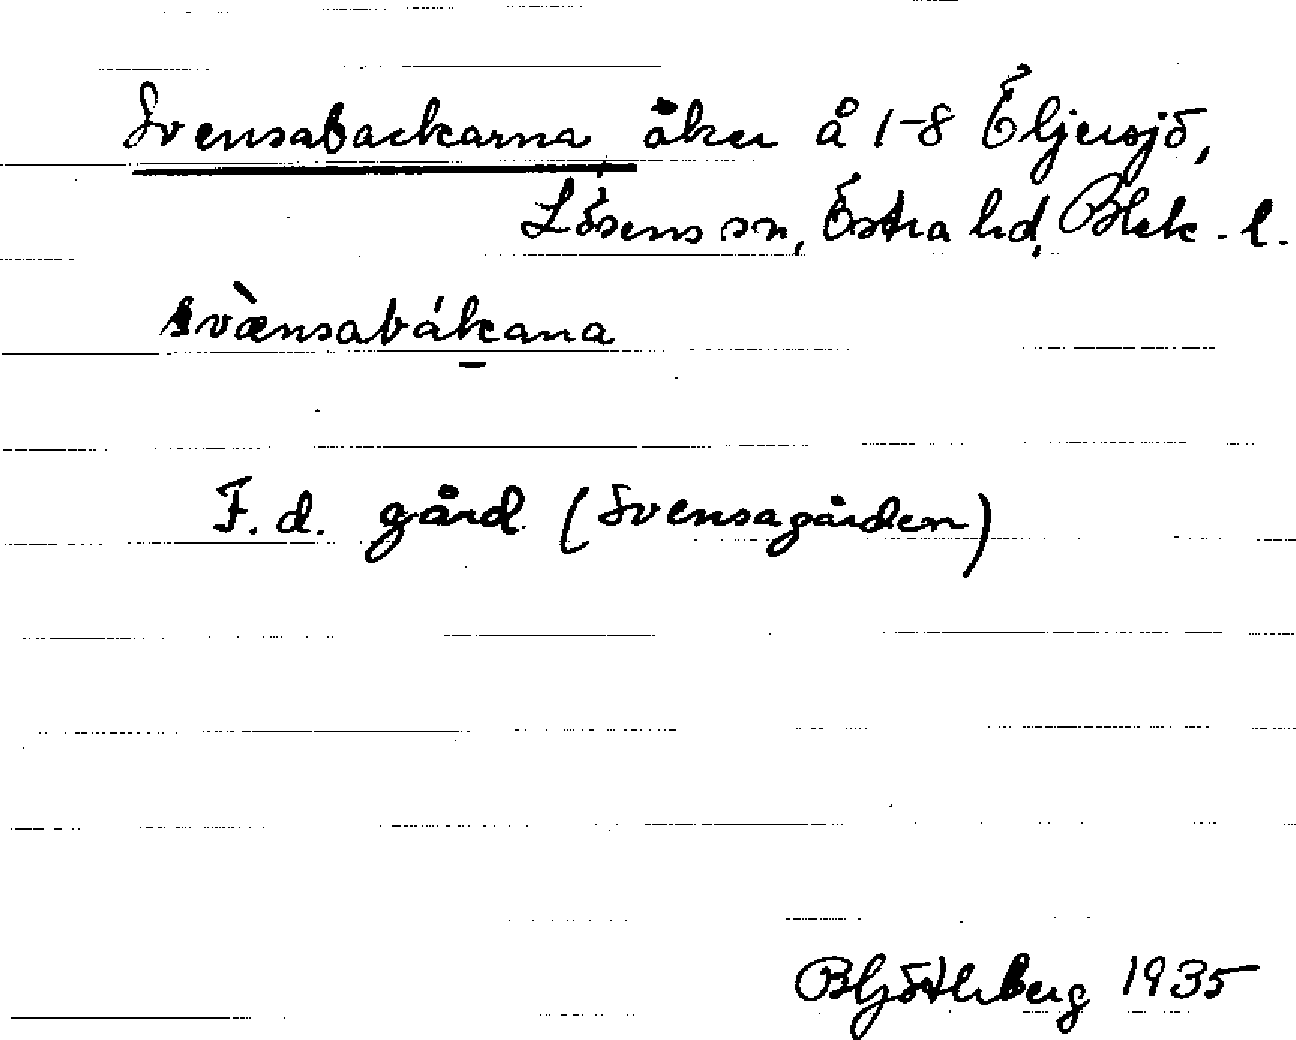 Svensabackarna, åker å 1-8 Öljersjö,
Lösens sn, Östra hd, Blek. l.
svænsabákana
F. d. gård (Svensagården)
1935